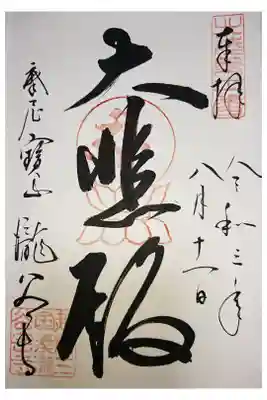 奉拝
令和三年
八月十一日
大悲殿
摩尼寶山
瀧谷寺